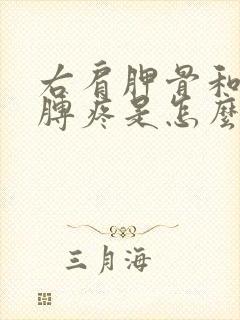 右肩胛骨和
脾疼是怎麼
三月海